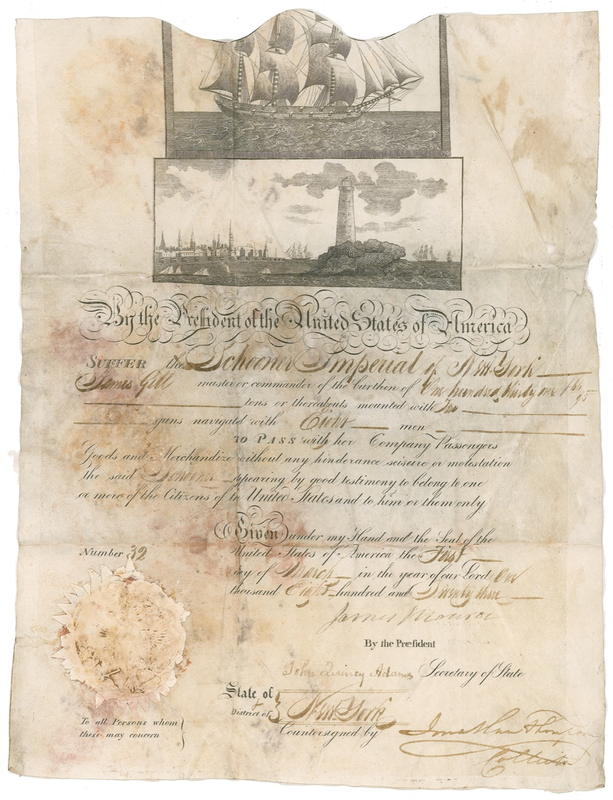 By the President of the United States of America
SUFFER the Schooner Imperial of New York
James Gill master or commander of the burthen of One hundred, thirty one 95
tons or thereabouts mounted with No
guns navigated with Eight men
TO PASS with her Company Passengers
Goods and Merchandize without any hinderance seisure or molestation
the said Schooner appearing by good testimony to belong to one
or more of the Citizens of the United States and to him or them only
Given under my Hand and the Seal of the
Number 32
United States of America the First
day of March in the year of our Lord One
thousand Eight hundred and Twenty three
James Monroe
By the President
John Quincy Adams Secretary of State
State of
District of } New York
To all Persons whom
these may concern }
Countersigned by Jonathan Thompson
Collector